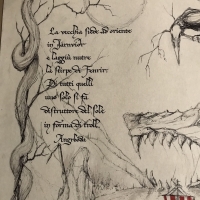 La vecchia siede ad oriente
in Jarnviðr
e laggiù nutre
la stirpe di Fenrir.
Di tutti quelli
uno solo si fa
distruttore del sole
in forma di troll.
Angrboda